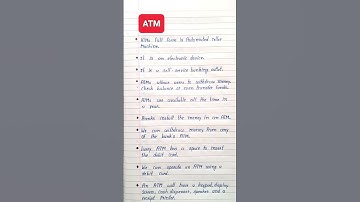 ATM
• ATMs full form is Automated Teller
Machine.
• It is an electronic device.
• It is a self-service banking outlet.
• ATMs allows users to withdraw money,
check balance or even transfer funds.
• ATMs are available all the time in
a year.
• Banks install the money in an ATM.
• We can withdraw money from any
of the bank's ATM.
• Every ATM has a space to insert
the debit card.
• We can operate an ATM using a
debit card.
• An ATM will have a keypad, display
screen, cash dispenser, speaker and a
receipt Printer.